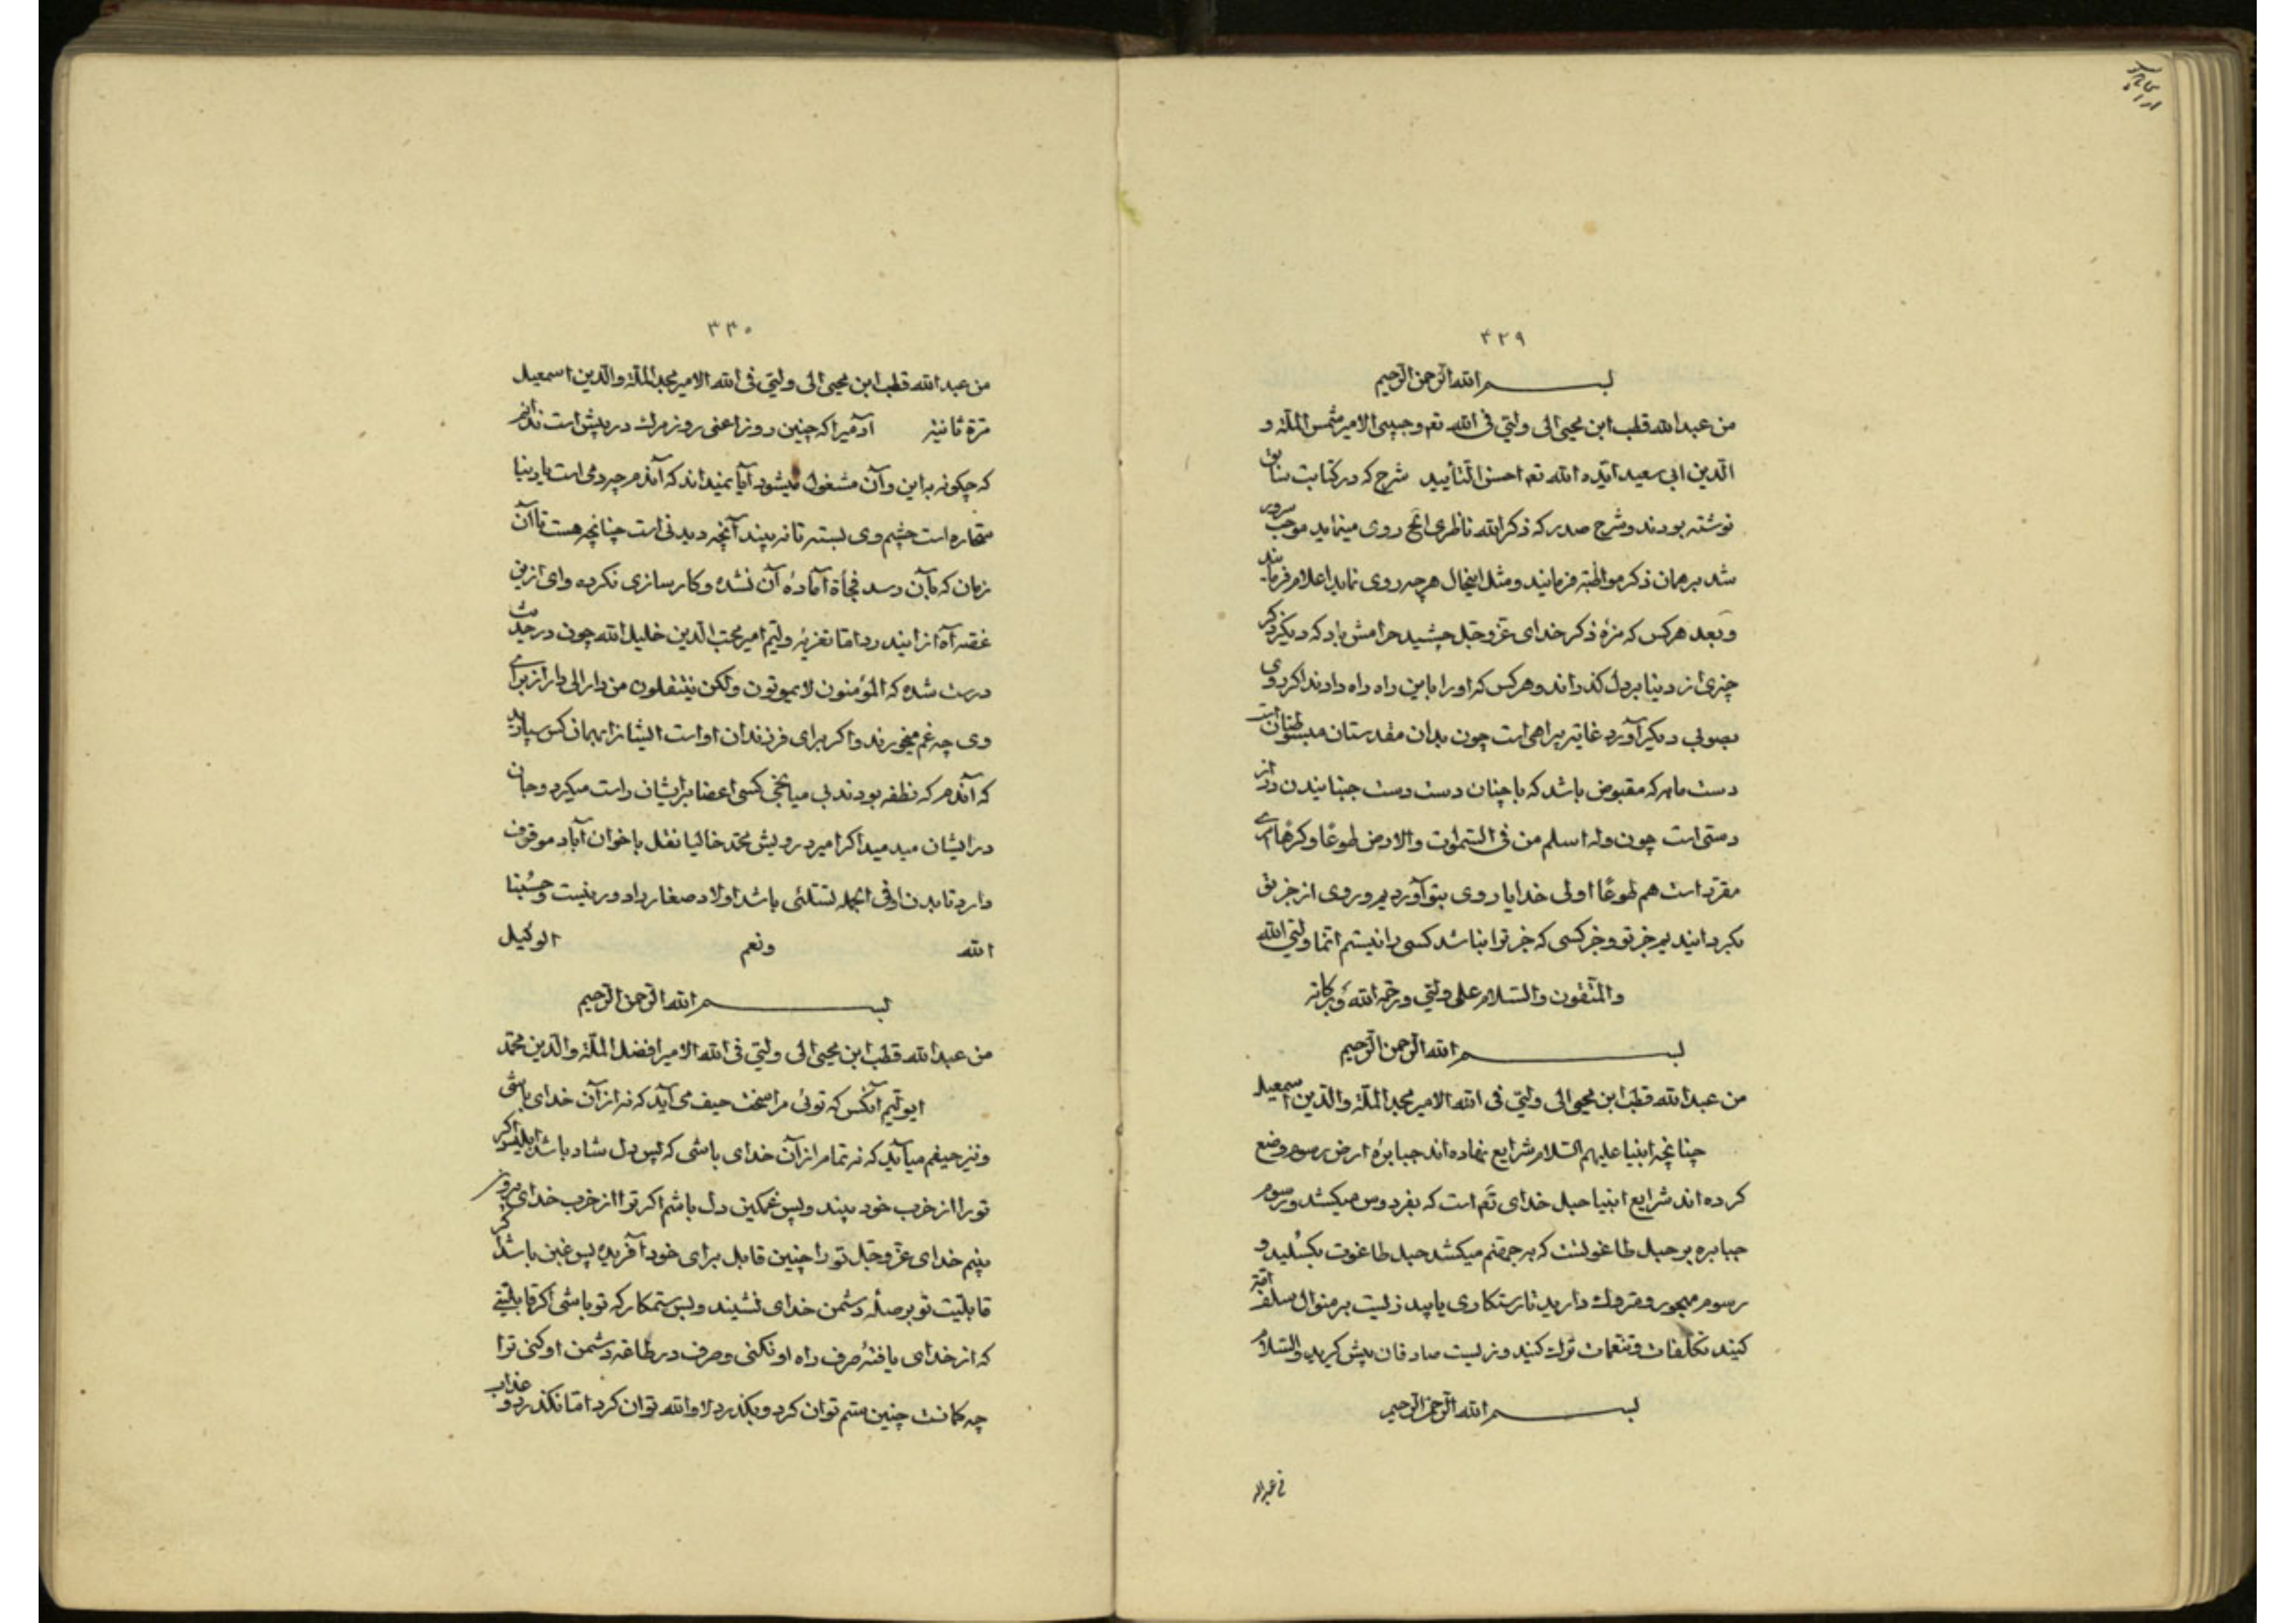 ۳۲۹
بسم الله الرحمن الرحیم
من عبدالله قطب ابن محیی الی ولیّی فی الله تعم وحبیبی الامیر شمس الملّة و
الدین ابی سعید ایّده الله تعم احسن التأیید شرح که در کتابت سابق
نوشته بودند و شرح صدر که ذکر الله ناظری الخ روی مینماید موجب سرور
شد بر همان ذکر مواظبة فرمایند و مثل اینحال هر چه روی نماید اعلام فرمایند
و بعد هر کس که مزهٔ ذکر خدای عزوجل چشید حرامش باد که دیگر ذکر
چیزی از دنیا بر دل گذراند و هر کس که او را باین راه راه دادند اگر روی
بصوبی دیگر آورد غایة بیراهی است چون بدان مقدستان مبسوطتان است
دست ما به که مقبوض باشد که با چنان دست دست جنبانیدن دراز
دستی است چون وله اسلم من فی السّموات والارض طوعًا وکرهًا امری
مقرّر است هم طوعًا اولی خدایا روی بتو آوردیم و روی از جز تو
بگردانیدیم جز تو و جز کسی که جز ترا نباشد کسی را نیستم انّما ولیّی الله
والمتّقون والسّلام علی ولیّی ورحمة الله وبرکاته
بسم الله الرحمن الرحیم
من عبدالله قطب ابن محیی الی ولیّی فی الله الامیر مجد الملّة والدین اسمعیل
چنانچه انبیا علیهم السّلام شرایع نهاده‌اند جبابرهٔ ارض رسوم وضع
کرده‌اند شرایع انبیا حبل خدای تعم است که بفردوس میکشد و رسوم
جبابره بر حبل طاغوتست که بر جهنّم میکشد حبل طاغوت بگسلید و
رسوم مهجور و متروک دارید تا رستکاری یابید زیست بر منوال سلف امّة
کنید تکلفات و تنعمات ترک کنید و زیست صادقان پیش گیرید والسّلام
بسم الله الرحمن الرحیم
۳۳۰
من عبدالله قطب ابن محیی الی ولیّی فی الله الامیر مجد الملّة والدین اسمعیل
مرّة ثانیة آدمیرا که چنین روز اعنی روز مرک در پیش است ندانم
که چگونه باین و آن مشغول میشود آیا نمیداند که آندم چه دمی است یا دنیا
سحاره است چشم وی بسته تا نه بیند آنچه دیدنی است چنانچه هست تا آن
زمان که بآن رسد فجأة آمادهٔ آن نشده و کارسازی نکرده وای ازین
غصه آه از ایندرد امّا تعزیهٔ ولیّم امیر محبّ الدین خلیل الله چون در حدیث
درست شده که المؤمنون لا یموتون ولکن ینتقلون من دار الی دار از برای
وی چه غم میخورند و اگر برای فرزندان او است ایشانرا بهمان کس سپارید
که آندم که نطفه بودند بی میانجی کسی اعضا بر ایشان راست میکرد و جان
در ایشان میدمید اگر امیر درویش محمّد خالیا نقل باخوان آباد موقوف
دارد تا بدن او فی الجمله تسلّئی باشد اولاد صغار را دور نیست وحسبنا
الله ونعم الوکیل
بسم الله الرحمن الرحیم
من عبدالله قطب ابن محیی الی ولیّی فی الله الامیر افضل الملّة والدین محمّد
ایولیّم آنکس که توئی مرا سخت حیف می‌آید که نه از آن خدای باشی
و نیز حیفم میآید که نه تمام از آن خدای باشی که پس دل شاد باشد ابلیس اگر
تو را از خرب خود بیند و پس غمکین دل باشم اگر تو را از خرب خدای بیرون
بینم خدای عزوجل تو را چنین قابل برای خود آفریده پس غبن باشد اگر
قابلیّت تو بر صلّه دشمن خدای نشیند و پس ستمکار که تو باشی اگر قابلیّتی
که از خدای یافتهٔ صرف راه او نکنی و صرف در طاعة دشمن او کنی ترا
چه کمانست چنین ستم توان کرد و بکذرد لا والله توان کرد امّا نکذرد و عذاب